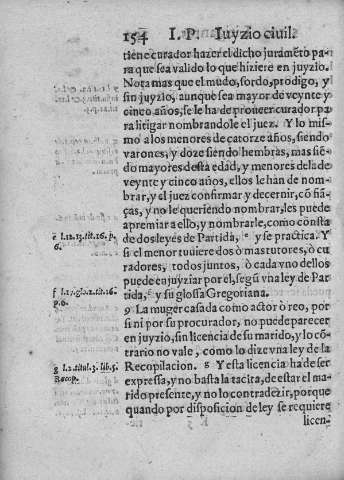 154 I. P. Iuyzio ciuil.
tiene curador hazer el dicho juramẽto pa-
ra que sea valido lo que hiziere en juyzio.
Nota mas que el mudo, sordo, prodigo, y
sin juyzio, aunque sea mayor de veynte y
cinco años, se le ha de proueer curador pa
ra litigar nombrandole el juez. Y lo mis-
mo a los menores de catorze años, siendo
varones, y doze siendo hembras, mas siẽ-
do mayores desta edad, y menores de la de
veynte y cinco años, ellos le han de nom-
brar, y el juez confirmar y decernir, cõ fiã-
ças, y no le queriendo nombrar, les puede
apremiar a ello, y nombrarle, como consta
e l. 12. 13. tit. 16. p. 6.
de dos leyes de Partida, e y se practica. Y
si el menor tuuiere dos ò mas tutores, ò cu
radores, todos juntos, ò cada vno dellos
puede en juyziar por el, segũ vna ley de Par
f l. 17. glo. 2. tit. 16. p. 6.
tida, f y su glossa Gregoriana.
9 La muger casada como actor ò reo, por
si ni por su procurador, no puede parecer
en juyzio, sin licencia de su marido, y lo cõ
trario no vale, como lo dize vna ley de la
g l. 2. titul. 3. lib. 5. Recop.
Recopilacion. g Y esta licencia ha de ser
expressa, y no basta la tacita, de estar el ma-
rido presente, y no lo contradezir, porque
quando por disposicion de ley se requiere
licen-